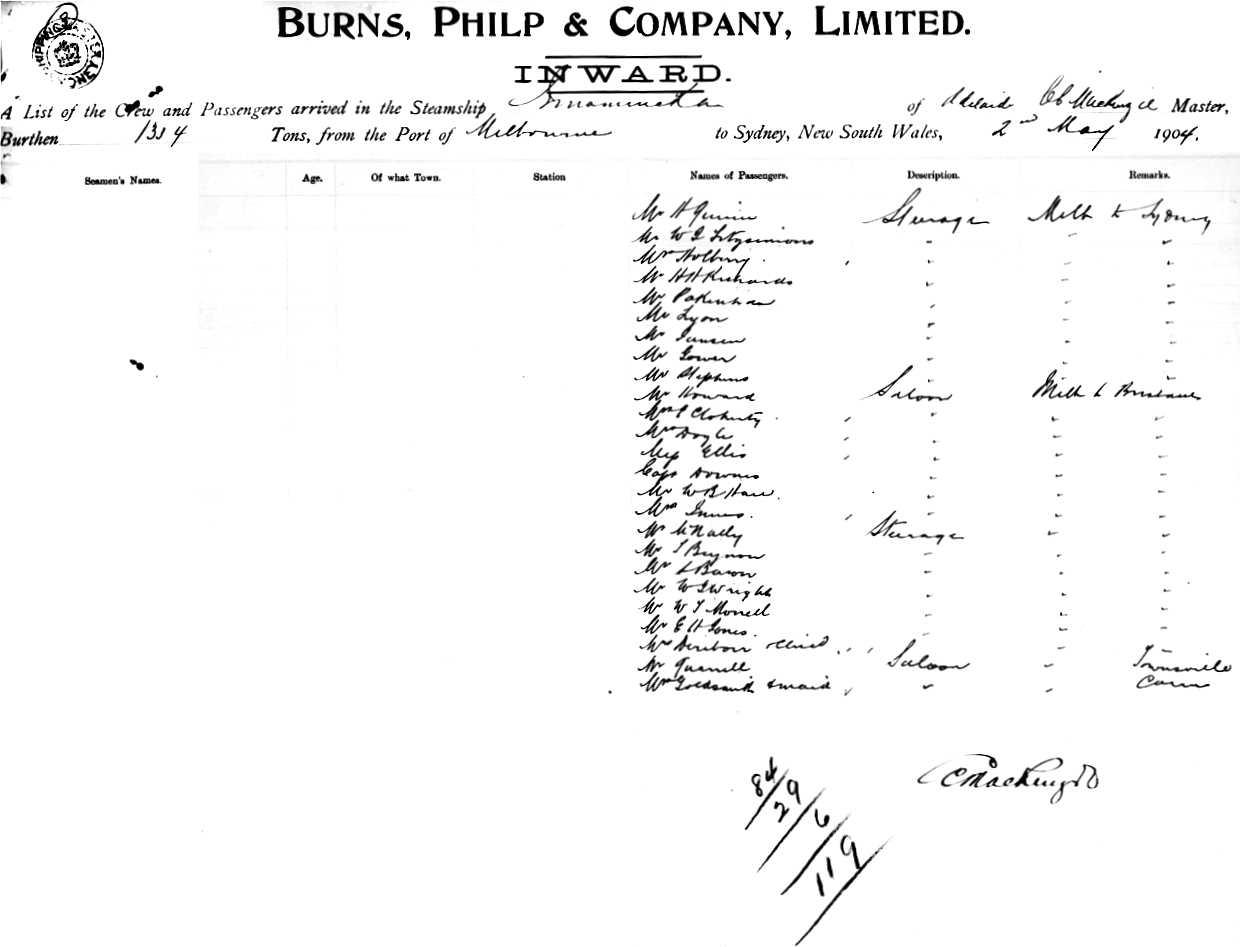 BURNS, PHILP & COMPANY, LIMITED.
INWARD.
A List of the Crew and Passengers arrived in the Steamship Innamincka of Adelaide Mackenzie Master,
Burthen Tons, from the Port of Melbourne to Sydney, New South Wales, 2nd May 1904.
Seamen's Names. Age. Of what Town. Station Names of Passengers. Description. Remarks.
Mr H Quinn Steerage Melb to Sydney
Mr W G Fitzsimions " " "
" " "
Mr H H Richards " " "
Mr Pakenham " " "
Mr Lyon " " "
Mr Jansen " " "
Mr Gower " " "
Mr Stephens " " "
Mr Howard Saloon Melb to Brisbane
Mrs Cloherty " " "
Mrs Doyle " " "
Ellis " " "
Capt Downes " " "
Mr W B Hall " " "
Mrs Innes " " "
Mr McNally Steerage " "
Mr Beynon " " "
Mr Baron " " "
Mr W G Wright " " "
Mr W T Morrell " " "
Mr E H Jones " " "
Mrs child " " "
Mr Quarrell Saloon " Townsville
Mrs Goldsmith & maid " " Cairns
C Mackenzie
84
29
6
119